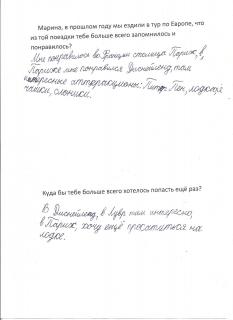 Марина, в прошлом году мы ездили в тур по Европе, что
из той поездки тебе больше всего запомнилось и
понравилось?
Мне понравилось во Франции столица Париж, в
Париже мне понравился Диснейленд, там
интересные аттеракционы: Питер Пен, лодка
чашки, слоники.
Куда бы тебе больше всего хотелось попасть ещё раз?
В Диснейленд, в Лувр там интересно,
в Париж, хочу ещё прокатиться на
лодке.